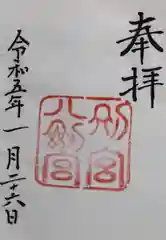 奉拝
八剣宮
別宮
令和五年一月二十六日